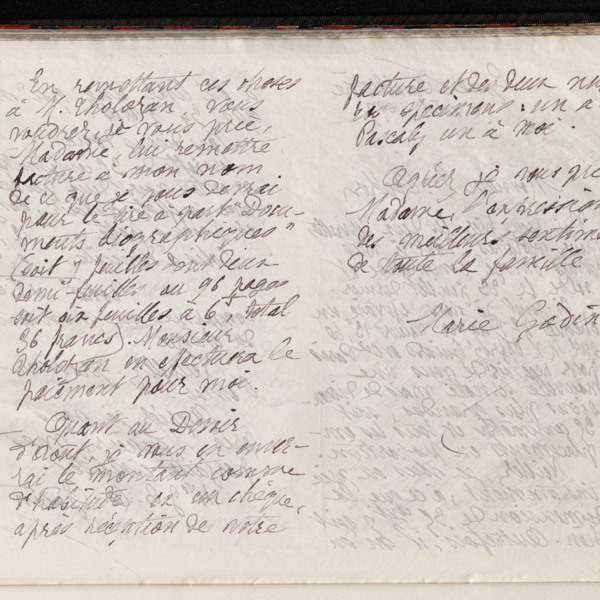 En remettant ces choses
à M. Tholozan vous
voudrez, je vous prie,
Madame, lui remettre
facture à mon nom
de ce que je vous devrai
pour le tiré à part "Docu-
ments biographiques"
(soit 7 feuilles dont deux
demi-feuilles ou 96 pages
soit six feuilles à 6f, total
36 francs). Monsieur
Tholozan en effectuera le
paiement pour moi.
Quant au Devoir
d'août, je vous en enver-
rai le montant comme
d'habitude en un chèque,
après réception de votre
facture et des deux
en spécimens: un à
Pascaly un à moi.
Agréez je vous
Madame, l'expression
des meilleurs
de toute la famille
Marie Godin